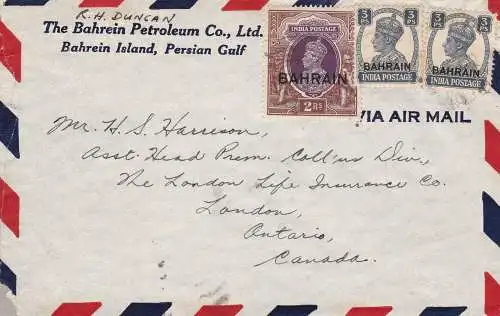 R. H. DUNCAN
The Bahrein Petroleum Co., Ltd.
Bahrein Island, Persian Gulf
INDIA POSTAGE
BAHRAIN
2 RS
3 PS 3 PS
BAHRAIN
INDIA POSTAGE
3 PS 3 PS
BAHRAIN
INDIA POSTAGE
VIA AIR MAIL
Mr. H. S. Harrison,
Asst. Head Prem. Coll'ns Div.,
The London Life Insurance Co.
London,
Ontario,
Canada.